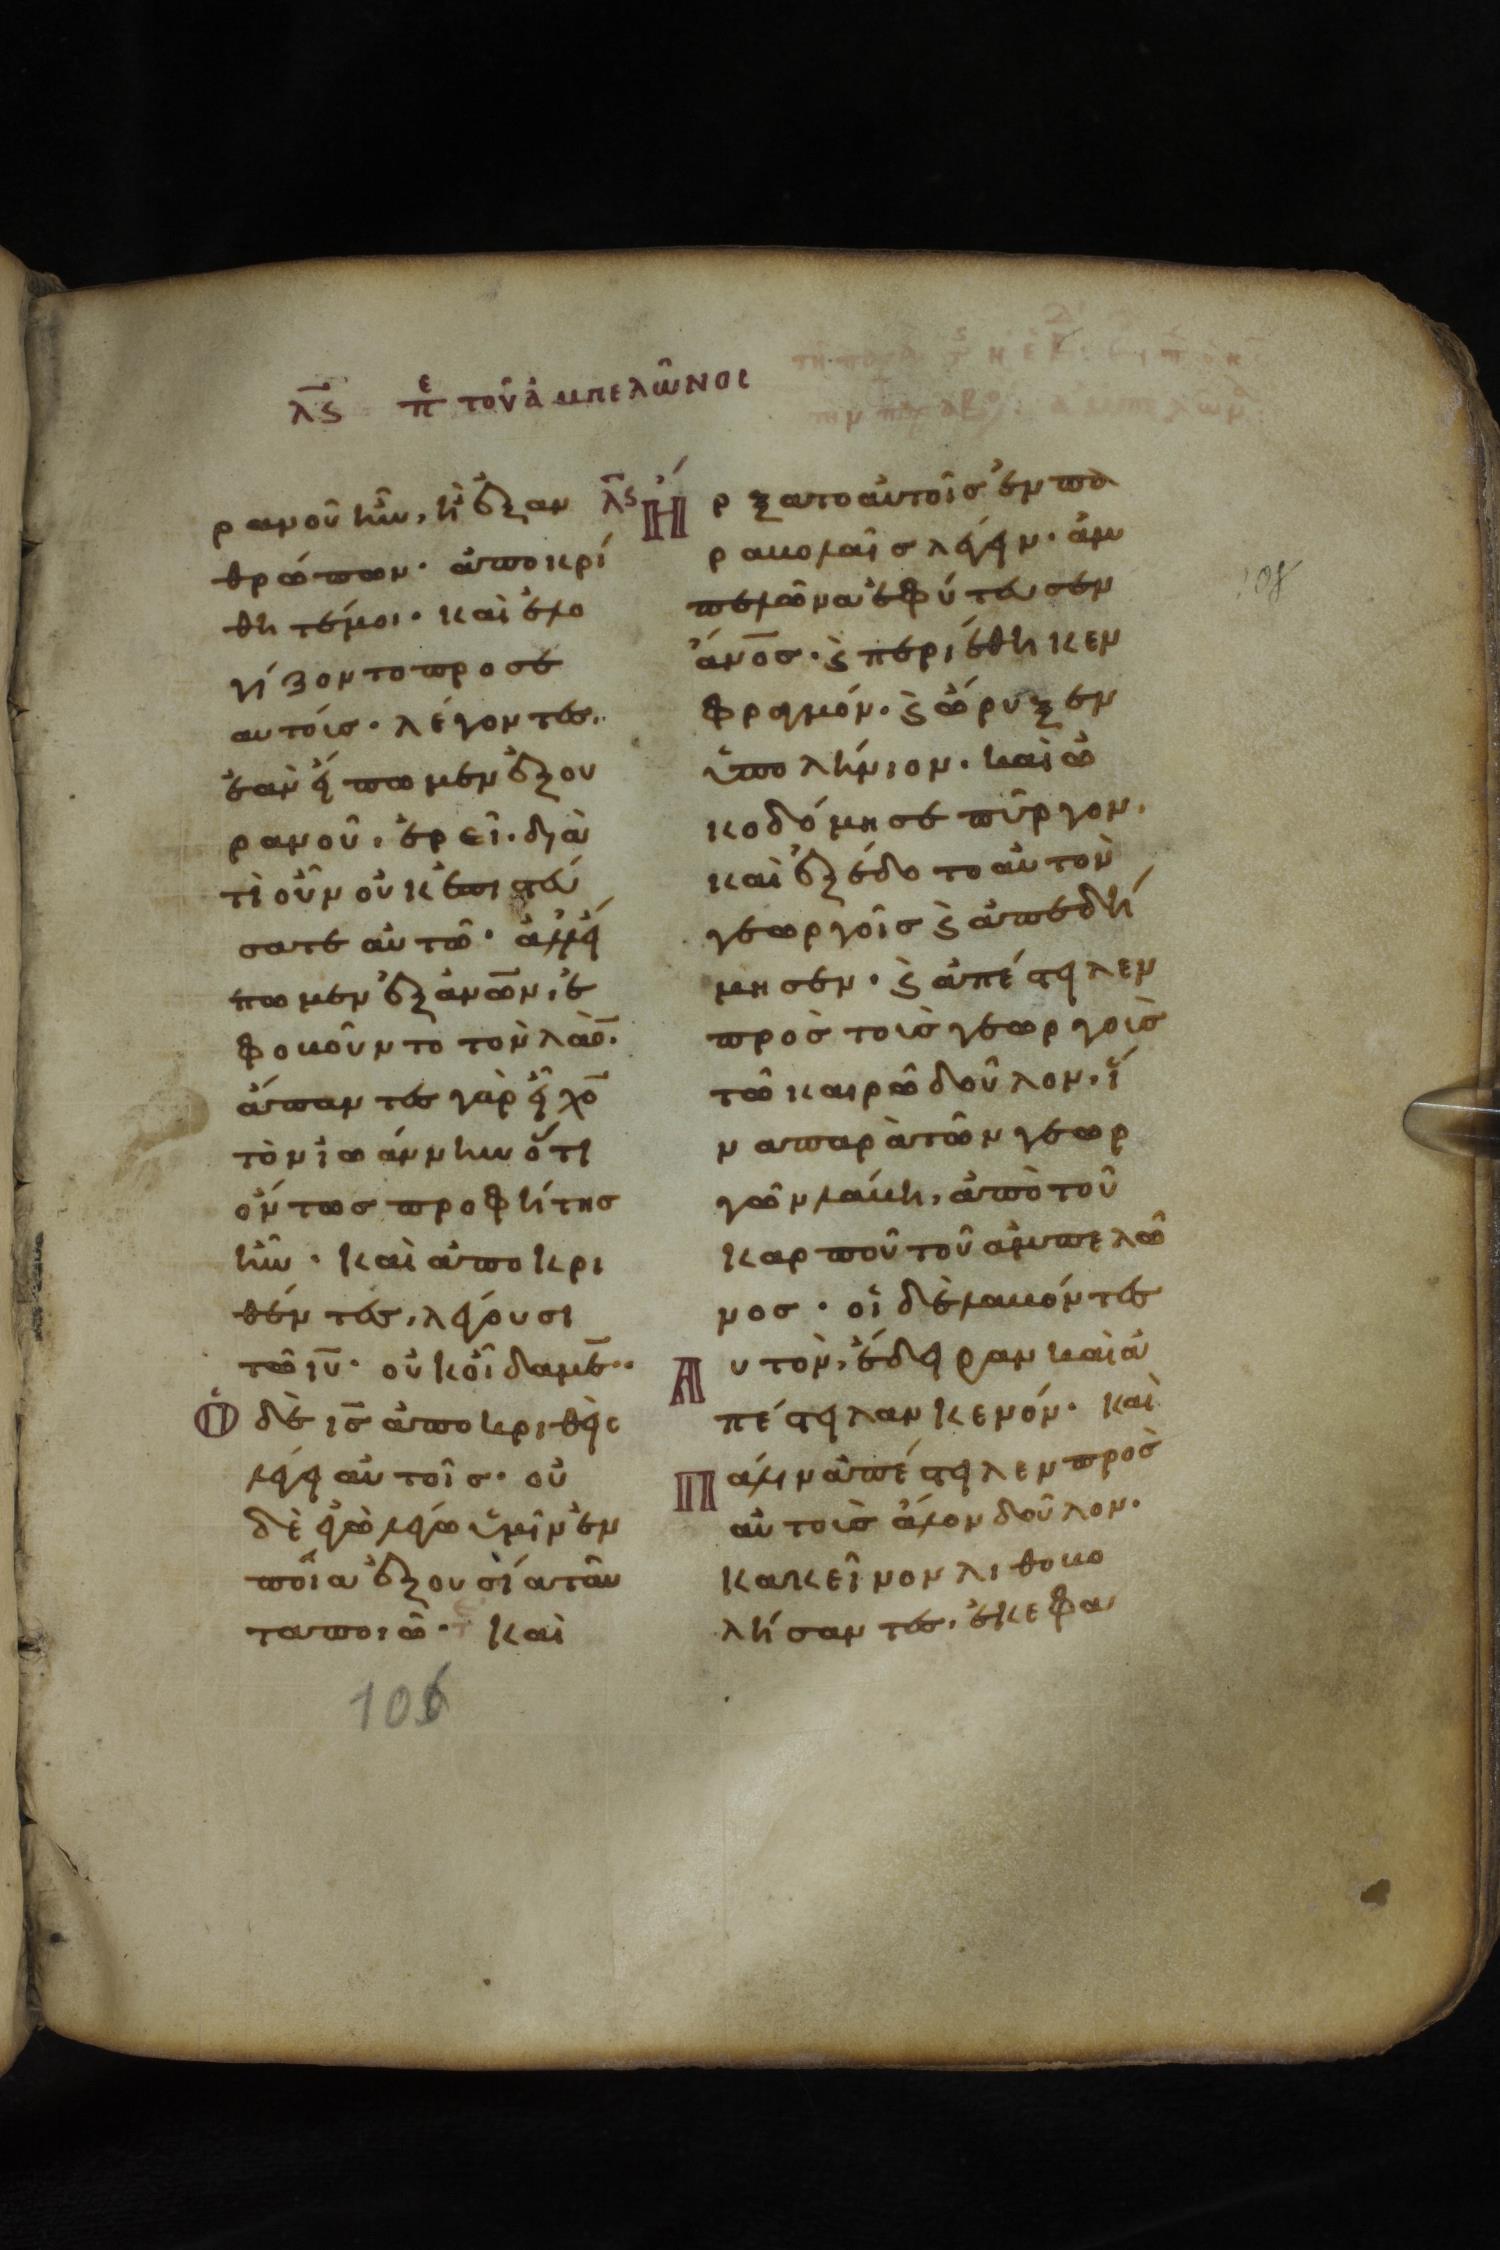 λς πε τοῦ ἀμπελῶνος
ρανοῦ ἦν, ἢ ἐξ ἀν
θρώπων· ἀποκρί
θητέ μοι· καὶ ἐλο
γίζοντο προσἑ
αυτόις· λέγοντες·
ἐὰν εἴπωμεν ἐξ ου
ρανοῦ, ἐρεῖ· διὰ
τὶ οὖν οὐκ ἐπιστεύ
σατε αὐτῶ· ἀλλ εἴ
πωμεν ἐξ ἀνων, ἐ
φοβοῦντο τὸν λαό·
ἅπαντες γὰρ εἶχο
τὸν ἰωάννην ὅτι
ὄντως προφήτης
ἦν· καὶ ἀποκρι
θέντες, λέγουσι
τῶ ιυ· οὐκ οἴδαμε··
Ὁ δὲ ις ἀποκριθεὶς
λέγει αὐτοῖς· οὐ
δὲ ἐγὼ λέγω ὑμῖν ἐν
ποῖα ἐξουσία ταῦ
τα ποιῶ· καὶ
106
λς Ἤρξατο αὐτοῖς ἐν πα
ραβολαῖς λέγειν· ἀμ
πελῶνα ἐφύτευσεν
ἄνος· ϛ περιέθηκεν
φραγμόν· ϛ ὤρυξεν
ὑπολήνιον· καὶ ὠ
κοδόμησε πῦργον,
καὶ ἐξέδοτο αὐτὸν
γεωργοῖς ϛ ἀπεδή
μησεν· ϛ ἀπέστειλεν
πρὸς τοὺς γεωργοὺς
τῶ καιρῶ δοῦλον, ἵ
να παρὰ τῶν γεωρ
γῶν λάβη, ἀπὸ τοῦ
καρποῦ τοῦ ἀμπελῶ
νος· οἱ δὲ λαβόντες
Αυτὸν, ἔδειραν καὶ ἀ
πέστειλαν κενόν· καὶ
Πάλιν ἀπέστειλεν πρὸς
αὐτοὺς ἄλλον δοῦλον·
κακεῖνον λιθοβο
λήσαντες, ἐκεφα